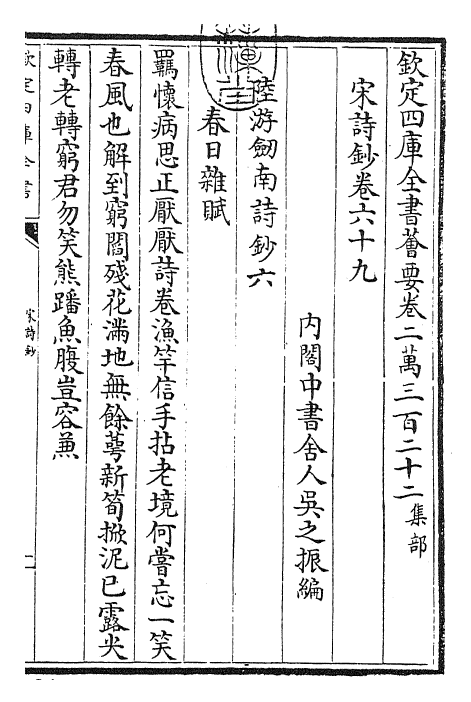 欽定四庫全書薈要卷二萬三百二十二集部
宋詩鈔卷六十九
內閣中書舍人吳之振編
陸游劒南詩鈔六
春日雜賦
羈懷病思正厭厭詩卷漁竿信手拈老境何嘗忘一笑
春風也解到窮閻殘花滿地無餘萼新筍掀泥已露尖
轉老轉窮君勿笑熊蹯魚腹豈容兼
欽定四庫全書
宋詩鈔